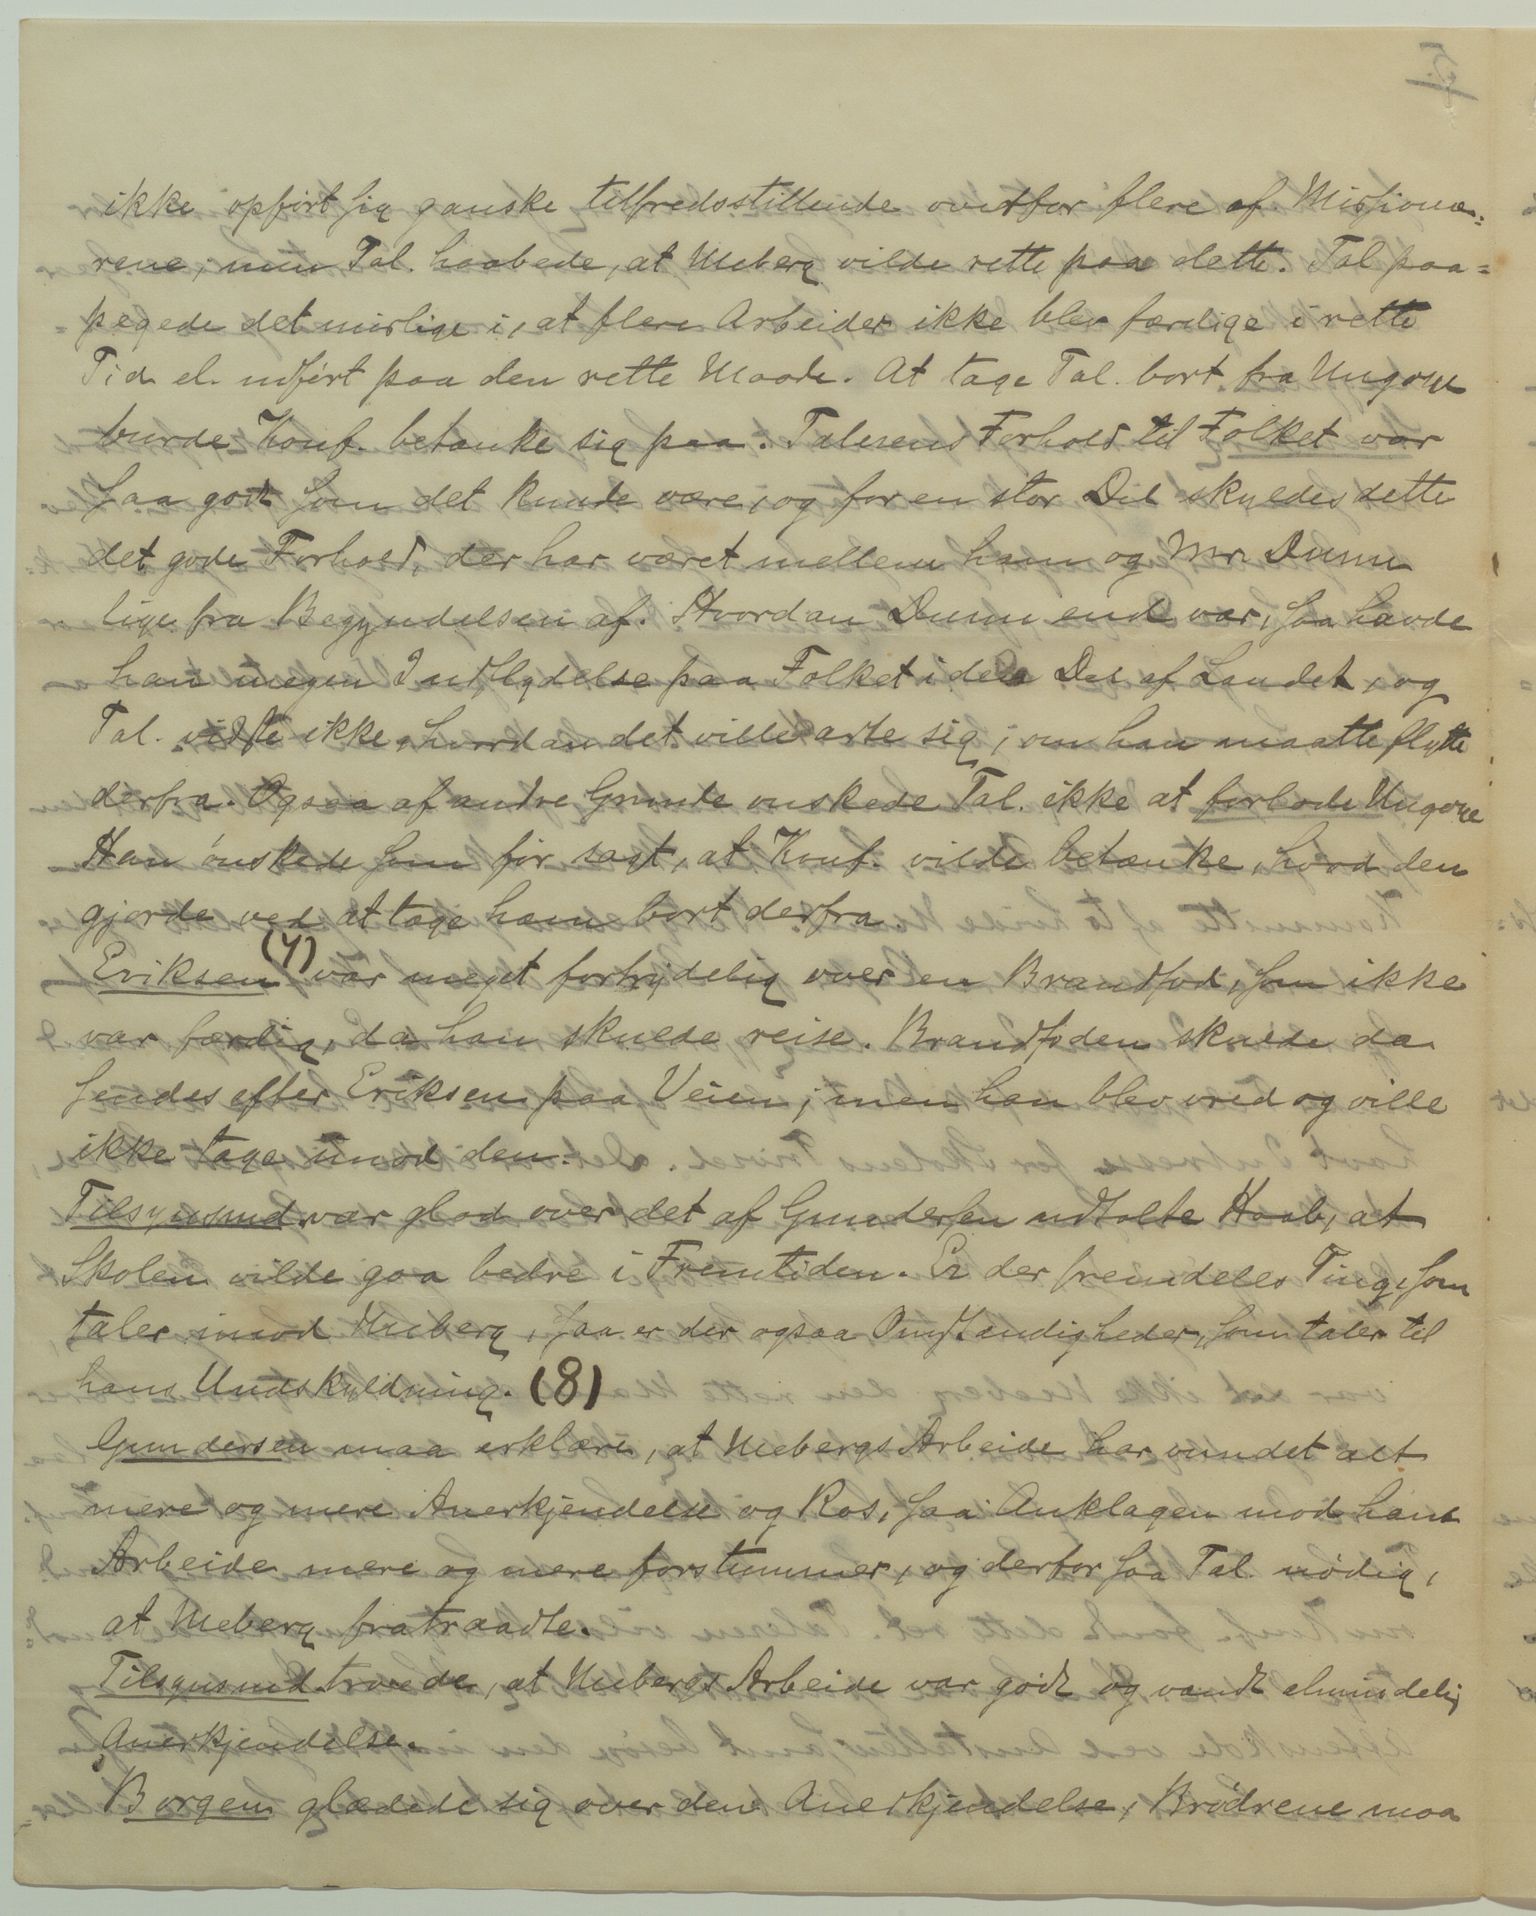 ikke opført sig ganske tilfredsstillende overfor flere af Missionæ=
rene; men Tal. haabede, at Meberg vilde rette paa dette. Tal paa=
pegede det mislige i, at flere Arbeider ikke blev færdige i rette
Tid el. udført paa den rette Maade. At tage Tal. bort fra Ungoye
burde Konf. betænke sig paa. Talerens Forhold til Folket var
saa godt som det kunde være, og for en stor Del skyldes dette
det gode Forhold, der har været mellem ham og Mr. Dunn
lige fra Begyndelsen af. Hvordan Dunn end var, saa havde
han megen Indflydelse paa Folket i den Del af Landet, og
Tal. vidste ikke, hvordan det ville arte sig, om han maatte flytte
derfra. Ogsaa af andre Grunde ønskede Tal. ikke at forlade Ungoye
Han ønskede som før sagt, at Konf. vilde betænke, hvad den
gjorde ved at tage ham bort derfra.
Eriksen (7) var meget fortrydelig over en Brandfod, som ikke
var færdig, da han skulde reise. Brandfoden skulde da
sendes efter Eriksen paa Veien; men han blev vred og ville
ikke tage imod den.
Tilsynsmd var glad over det af Gundersen udtalte Haab, at
Skolen vilde gaa bedre i Fremtiden. Er der fremdeles Ting, som
taler imod Meberg, saa er der ogsaa Omstændigheder, som taler til
hans Undskyldning. (8)
Gundersen maa erklære, at Mebergs Arbeide har vundet alt
mere og mere Anerkjendelse og Ros, saa Anklagen mod hans
Arbeide mere og mere forstummer, og derfor saa Tal nødig,
at Meberg fratraadte.
Tilsynsmd troede, at Mebergs Arbeide var godt og vandt almindelig
Anerkjendelse.
Borgen glædede sig over den Anerkjendelse, Brødrene maa